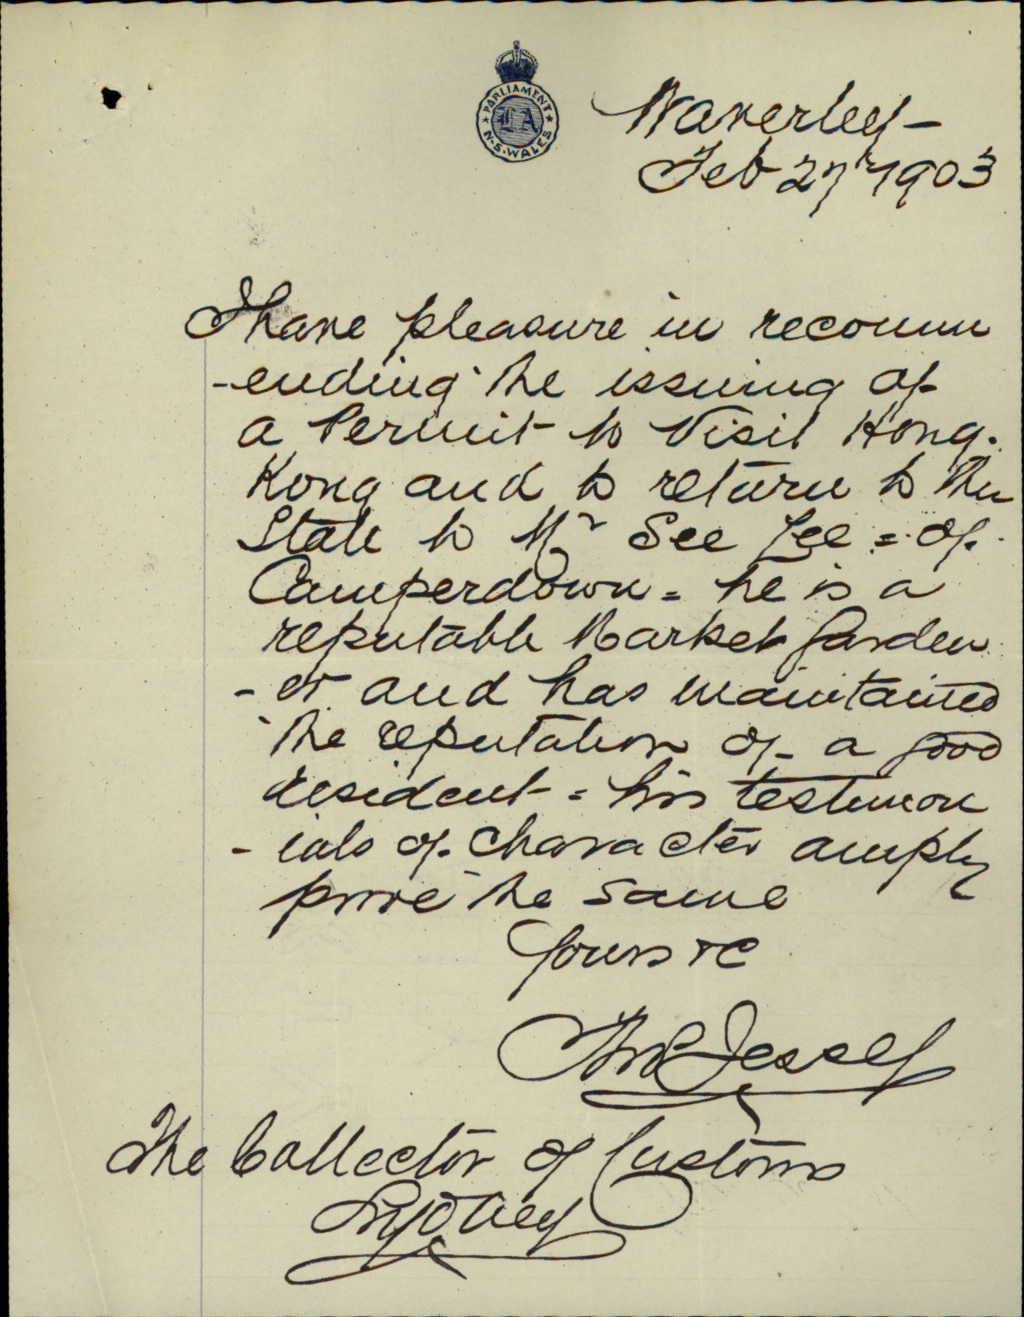 PARLIAMENT
LA
N.S. WALES
Waverley -
Feb 27th 1903
I have pleasure in recomm
-ending the issuing of
a Permit to Visit Hong-
Kong and to return to this
State to Mr See Lee = of
Camperdown = he is a
reputable Market Garden
-er and has maintained
the reputation of a good
resident = his testimon
-ials of character amply
prove the same
Yours &c
Thos Jessep
The Collector of Customs
Sydney